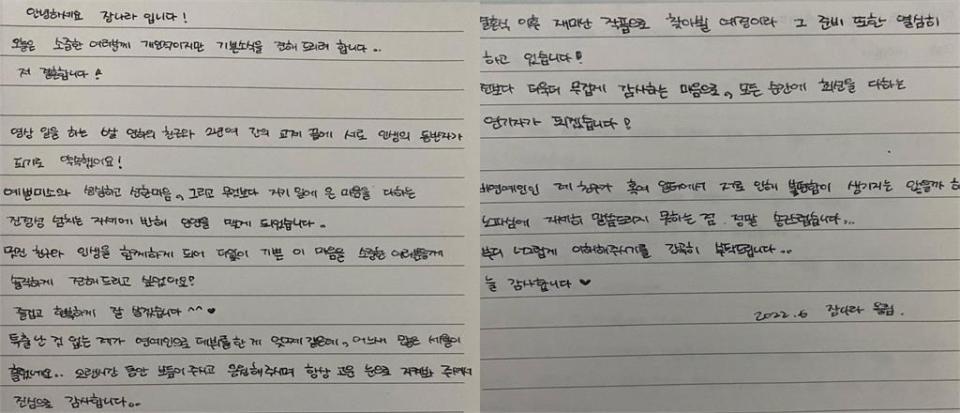 안녕하세요 장나라 입니다!
오늘은 소중한 여러분께 개인적이지만 기쁜소식을 전해 드리려 합니다..
저 결혼합니다^
영상 일을 하는 6살 연하의 친구와 2년여 간의 교제 끝에 서로 인생의 동반자가
되기로 약속했어요!
예쁜미소와 성실하고 선한마음, 그리고 무엇보다 자기 일에 온 마음을 다하는
진정성 넘치는 자세에 반해 인연을 맺게 되었습니다.
멋진 친구와 인생을 함께하게 되어 더없이 기쁜 이 마음을 소중한 여러분들께
솔직하게 전해드리고 싶었어요?
즐겁고 행복하게 잘 살겠습니다^^ ♥
특출난 것 없는 제가 연예인으로 데뷔를 한 게 엊그제 같은데, 어느새 많은 세월이
흘렀네요.. 오랜시간 동안 보듬어 주시고 응원해주시며 항상 고운 눈으로 지켜봐 주셔서
진심으로 감사합니다..
결혼식 이후 재미난 작품으로 찾아뵐 예정이라 그 준비 또한 열심히
하고 있습니다!
전보다 더욱더 무겁게 감사하는 마음으로, 모든 순간에 최선을 다하는
연기자가 되겠습니다!
비연예인인 제 친구가 혹여 일터에서 저로 인해 불편함이 생기지는 않을까 하
노파심에 자세히 말씀드리지 못하는 점. 정말 송구합니다...
부디 너그럽게 이해해주시기를 간곡히 부탁드립니다..
늘 감사합니다 ♥
2022.6 장나라 올림.